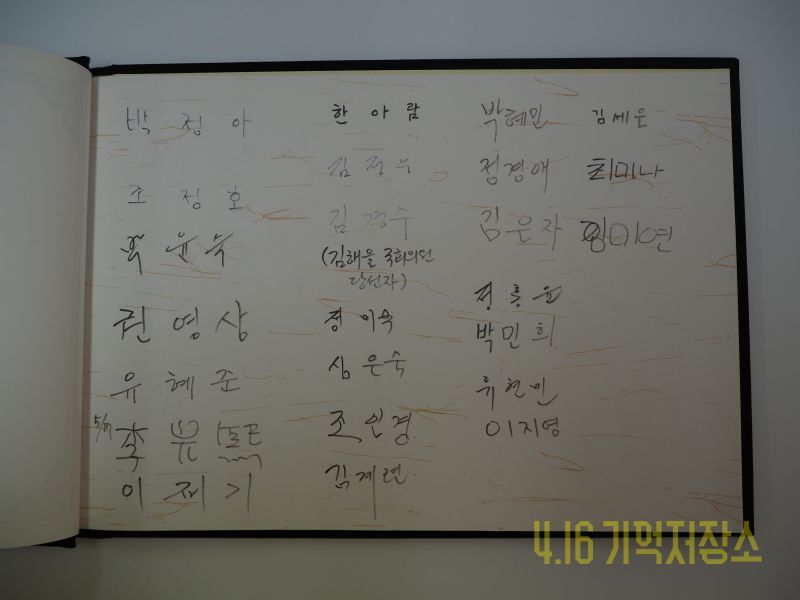 박정아
소정호
권영상
유혜준
5/17
이제기
한아람
김정우
김경수
(김해을 국회의원
당선자)
정이숙
심은숙
조인경
김계련
박혜민
정경애
김은자
정흥윤
박민희
류현민
이지영
김세운
최미나
김미연
4.16 기억저장소